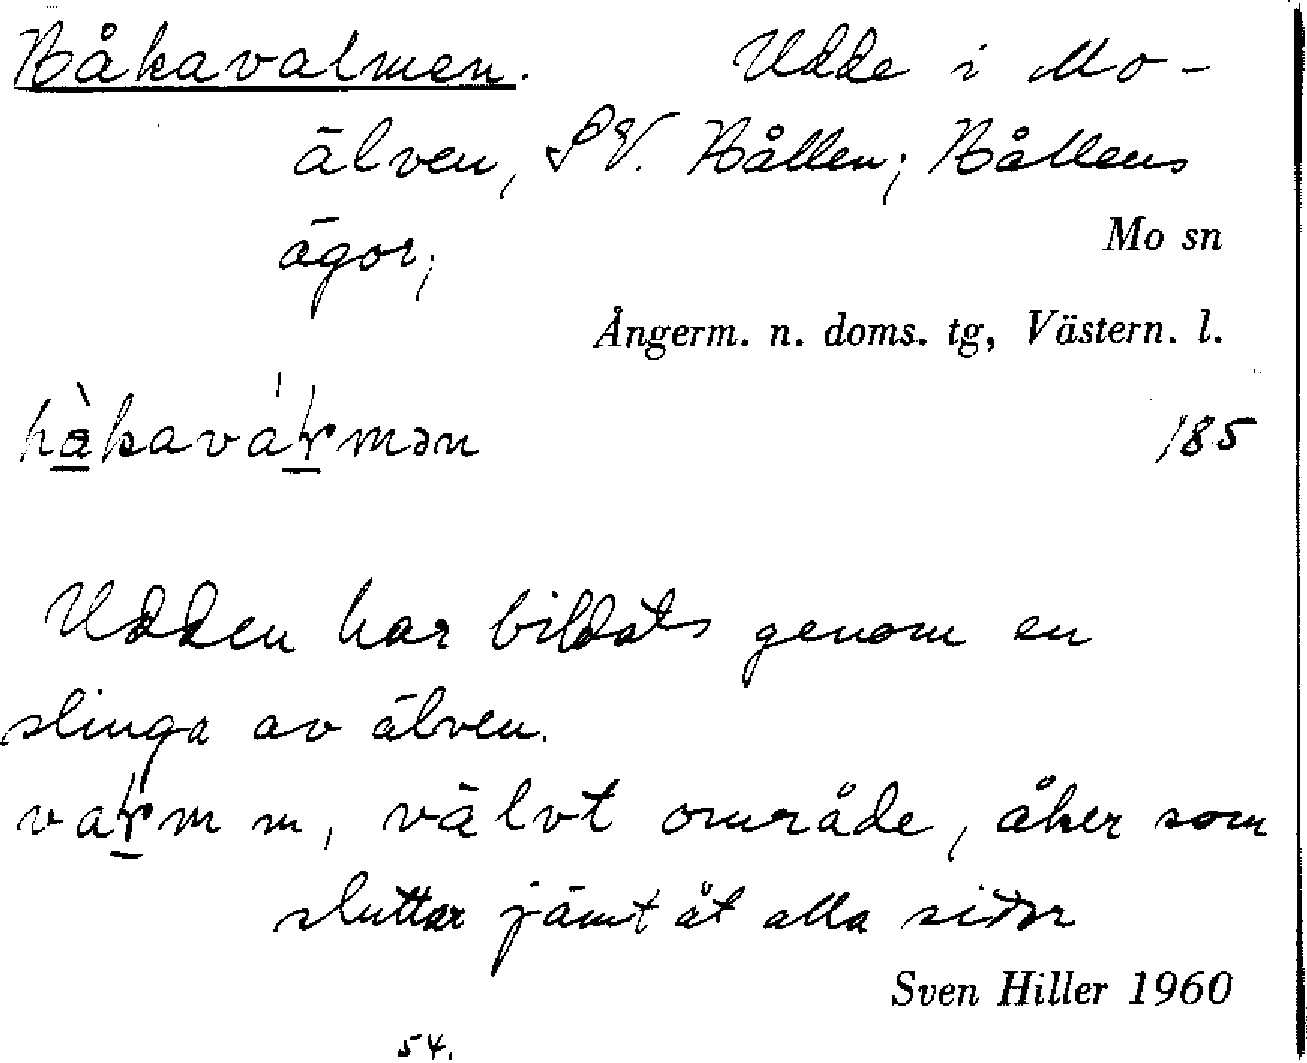 Håkavalmen. Udde i Mo-
älven, SV. Hållen; Hållens
ägor;
Mo sn
Ångerm. n. doms. tg, Västern. l.
hàkavàɽmən
185
Udden har bildats genom en
slinga av älven.
vaɽm m, välvt område, åker som
sluttar jämt åt alla sidor
Sven Hiller 1960
54.